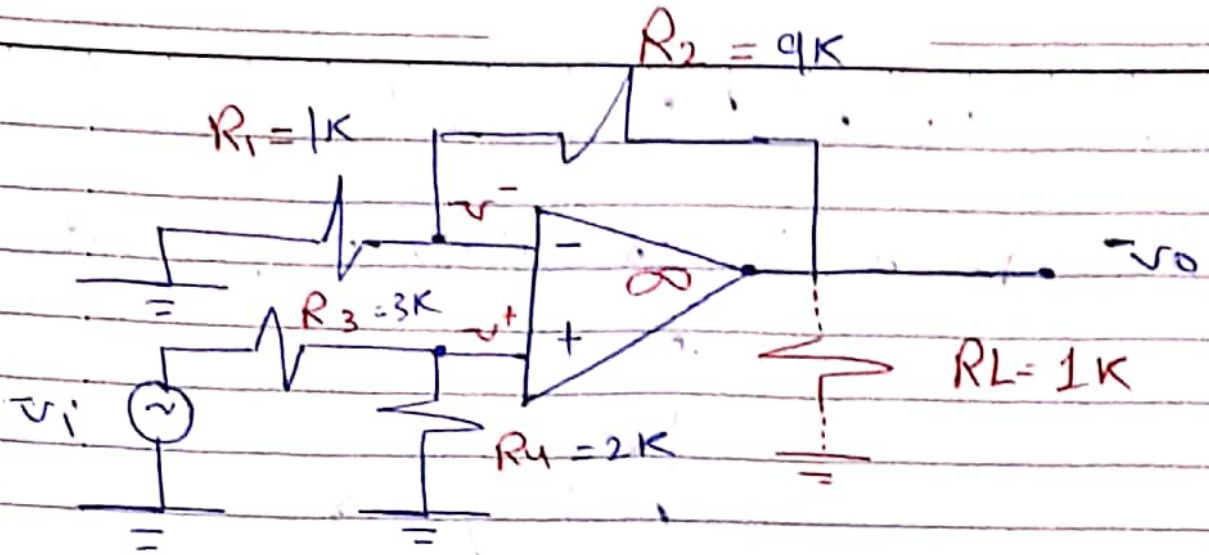 R₂ = 9K
R₁ = 1K
v⁻
−
∞
vo
R3 = 3K
v⁺
+
RL = 1K
vi
~
R4 = 2K